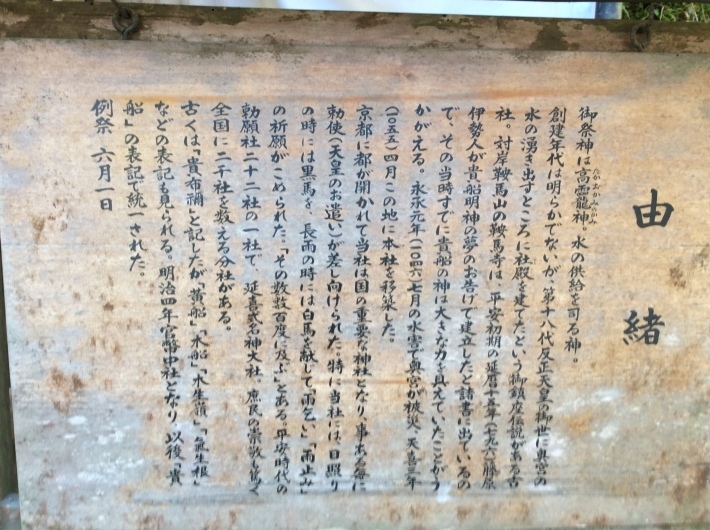 由緒
御祭神は高龗龍神。水の供給を司る神。
創建年代は明らかでないが、第十八代反正天皇の御世に奥宮の
水の湧き出すところに社殿を建てたという御鎮座伝説がある古
社。対岸鞍馬山の鞍馬寺は、平安初期の延暦十五年(七九六)藤原
伊勢人が貴船明神の夢のお告げで建立したと諸書に出ているの
で、その当時すでに貴船の神は大きな力を具えていたことがう
かがえる。永承元年(一〇四六)七月の水害で奥宮が被災、天喜三年
(一〇五五)四月この地に本社を移築した。
京都に都が開かれて当社は国の重要な神社となり、事ある毎に
勅使(天皇のお遣い)が差し向けられた。特に当社には、日照り
の時には黒馬を、長雨の時には白馬を献じて「雨乞い」「雨止み」
の祈願がこめられた。「その数数百度に及ぶ」とある。平安時代の
勅願社二十二社の一社で、延喜式名神大社。庶民の崇敬も篤く
全国に二千社を数える分社がある。
古くは「貴布禰」と記したが「黄船」「木船」「木生嶺」「氣生根」
などの表記も見られる。明治四年官幣中社となり、以後「貴
船」の表記で統一された。
例祭 六月一日